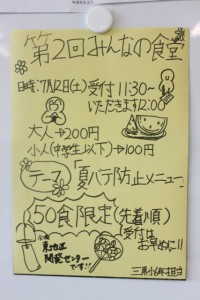 第2回みんなの食堂
日時:7月12日(土)受付11:30~
いただきます12:00
大人→200円
小人(中学生以下)→100円
テーマ「夏バテ防止メニュー」
50食限定(先着順)
受付は
お早めに!!
会場
開発センター
です!!